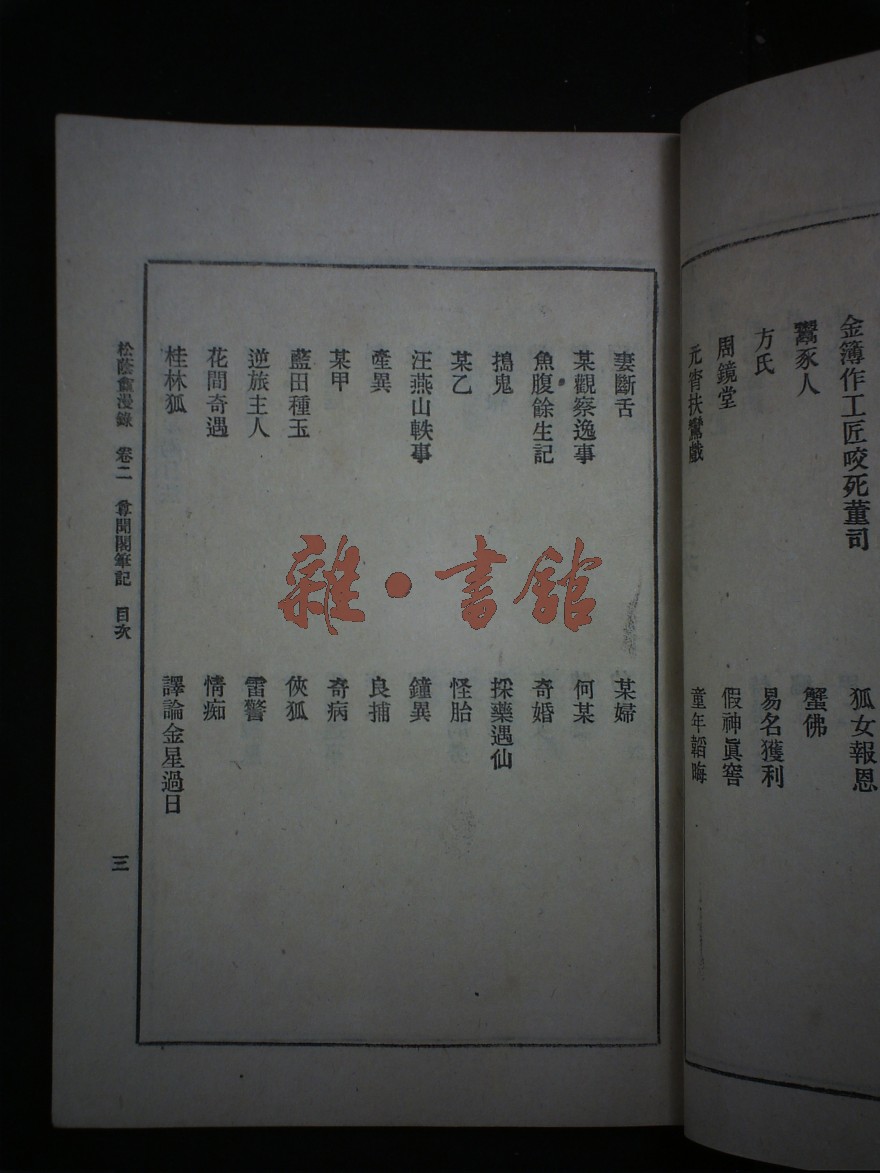 金簿作工匠咬死董司
狐女報恩
鬻豕人
蟹佛
方氏
易名獲利
周鏡堂
假神眞窖
元宵扶鸞戲
童年韜晦
妻斷舌
某婦
某觀察逸事
何某
魚腹餘生記
奇婚
搗鬼
採藥遇仙
某乙
怪胎
汪燕山軼事
鐘異
產異
良捕
某甲
奇病
藍田種玉
俠狐
逆旅主人
雷警
花間奇遇
情痴
桂林狐
譯論金星過日
松蔭盦漫錄 卷二 尊聞閣筆記 目次
三
雜·書館